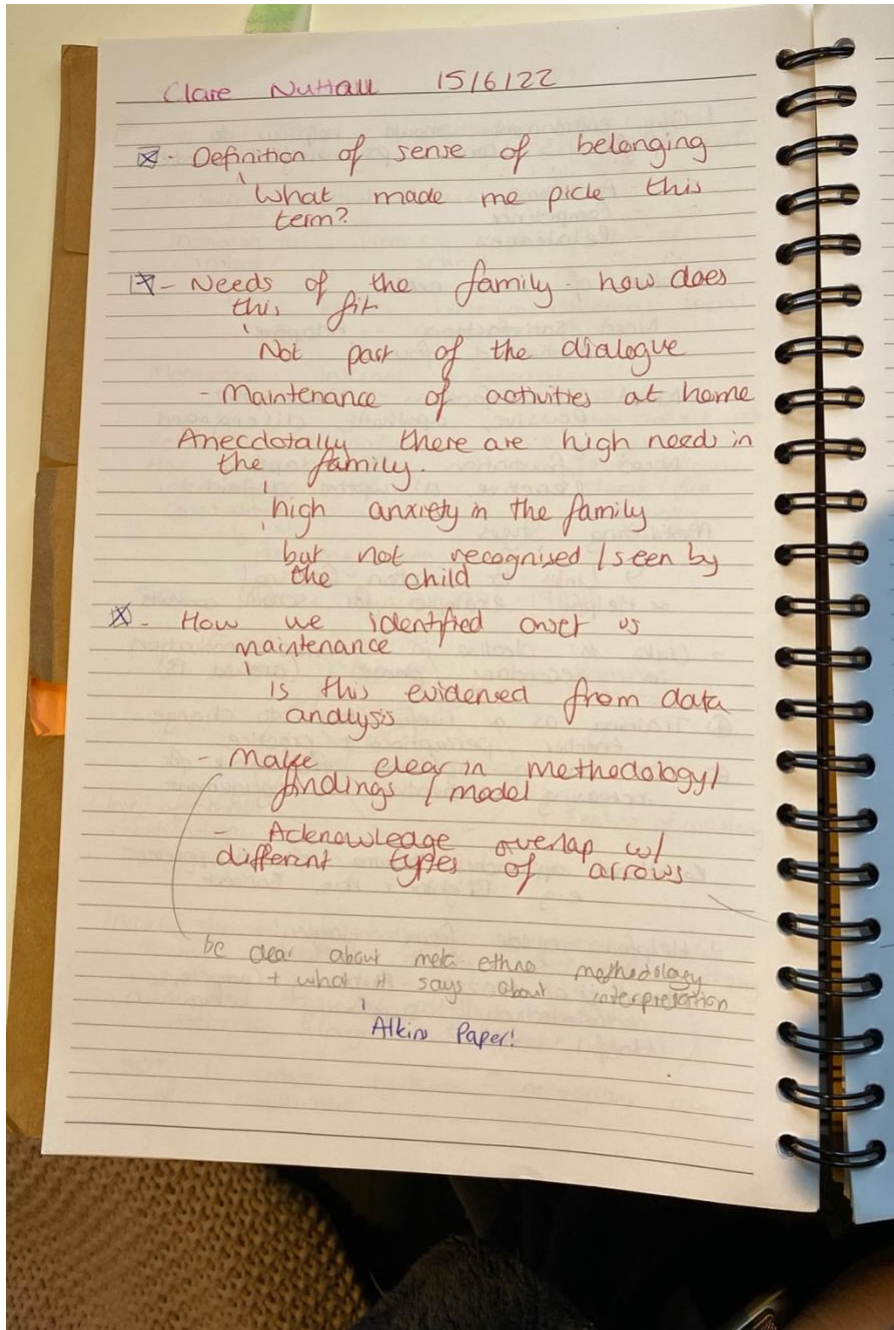 Clare Nuttall 15/6/22
- Definition of sense of belonging
What made me pick this
term?
- Needs of the family - how does
this fit
Not part of the dialogue
- Maintenance of activities at home
Anecdotally there are high need in
the family.
high anxiety in the family
but not recognised / seen by
the child
- How we identified onset vs
maintenance
is this evidenced from data
analysis
- Make clear in methodology/
findings / model
- Acknowledge overlap w/
different types of arrows
be clear about meta ethno methodology
+ what it says about interpretation
Atkins Paper!